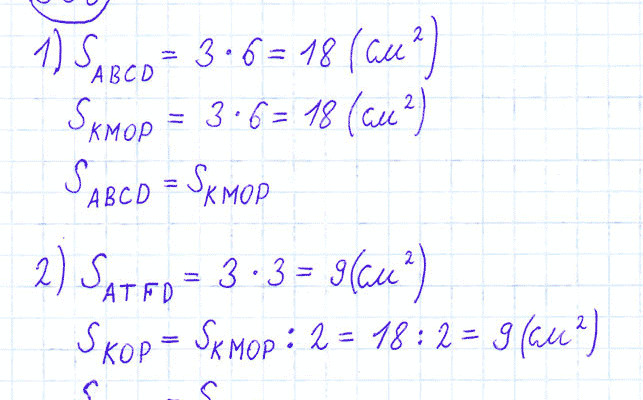 1) S ABCD = 3 · 6 = 18 (см²)
S KMOP = 3 · 6 = 18 (см²)
S ABCD = S KMOP
2) S ATFD = 3 · 3 = 9 (см²)
S KOP = S KMOP : 2 = 18 : 2 = 9 (см²)